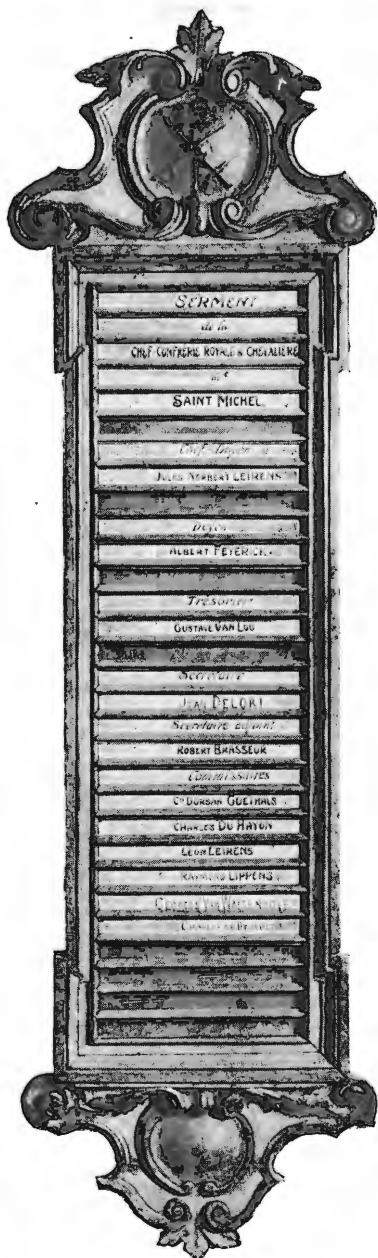 SERMENT
de la
CHEF CONFRERIE ROYALE & CHEVALIERE
SAINT MICHEL
JULES NORBERT LEIRENS
Doyen
ALBERT FEYERICK
Trésorier
GUSTAVE VAN LOO
Secrétaire
JEAN DELORI
Secrétaire adjoint
ROBERT BRASSEUR
Commissaires
DURSAN GOETHALS
CHARLES DU HAYON
LEON LEIRENS
RAYMOND LIPPENS